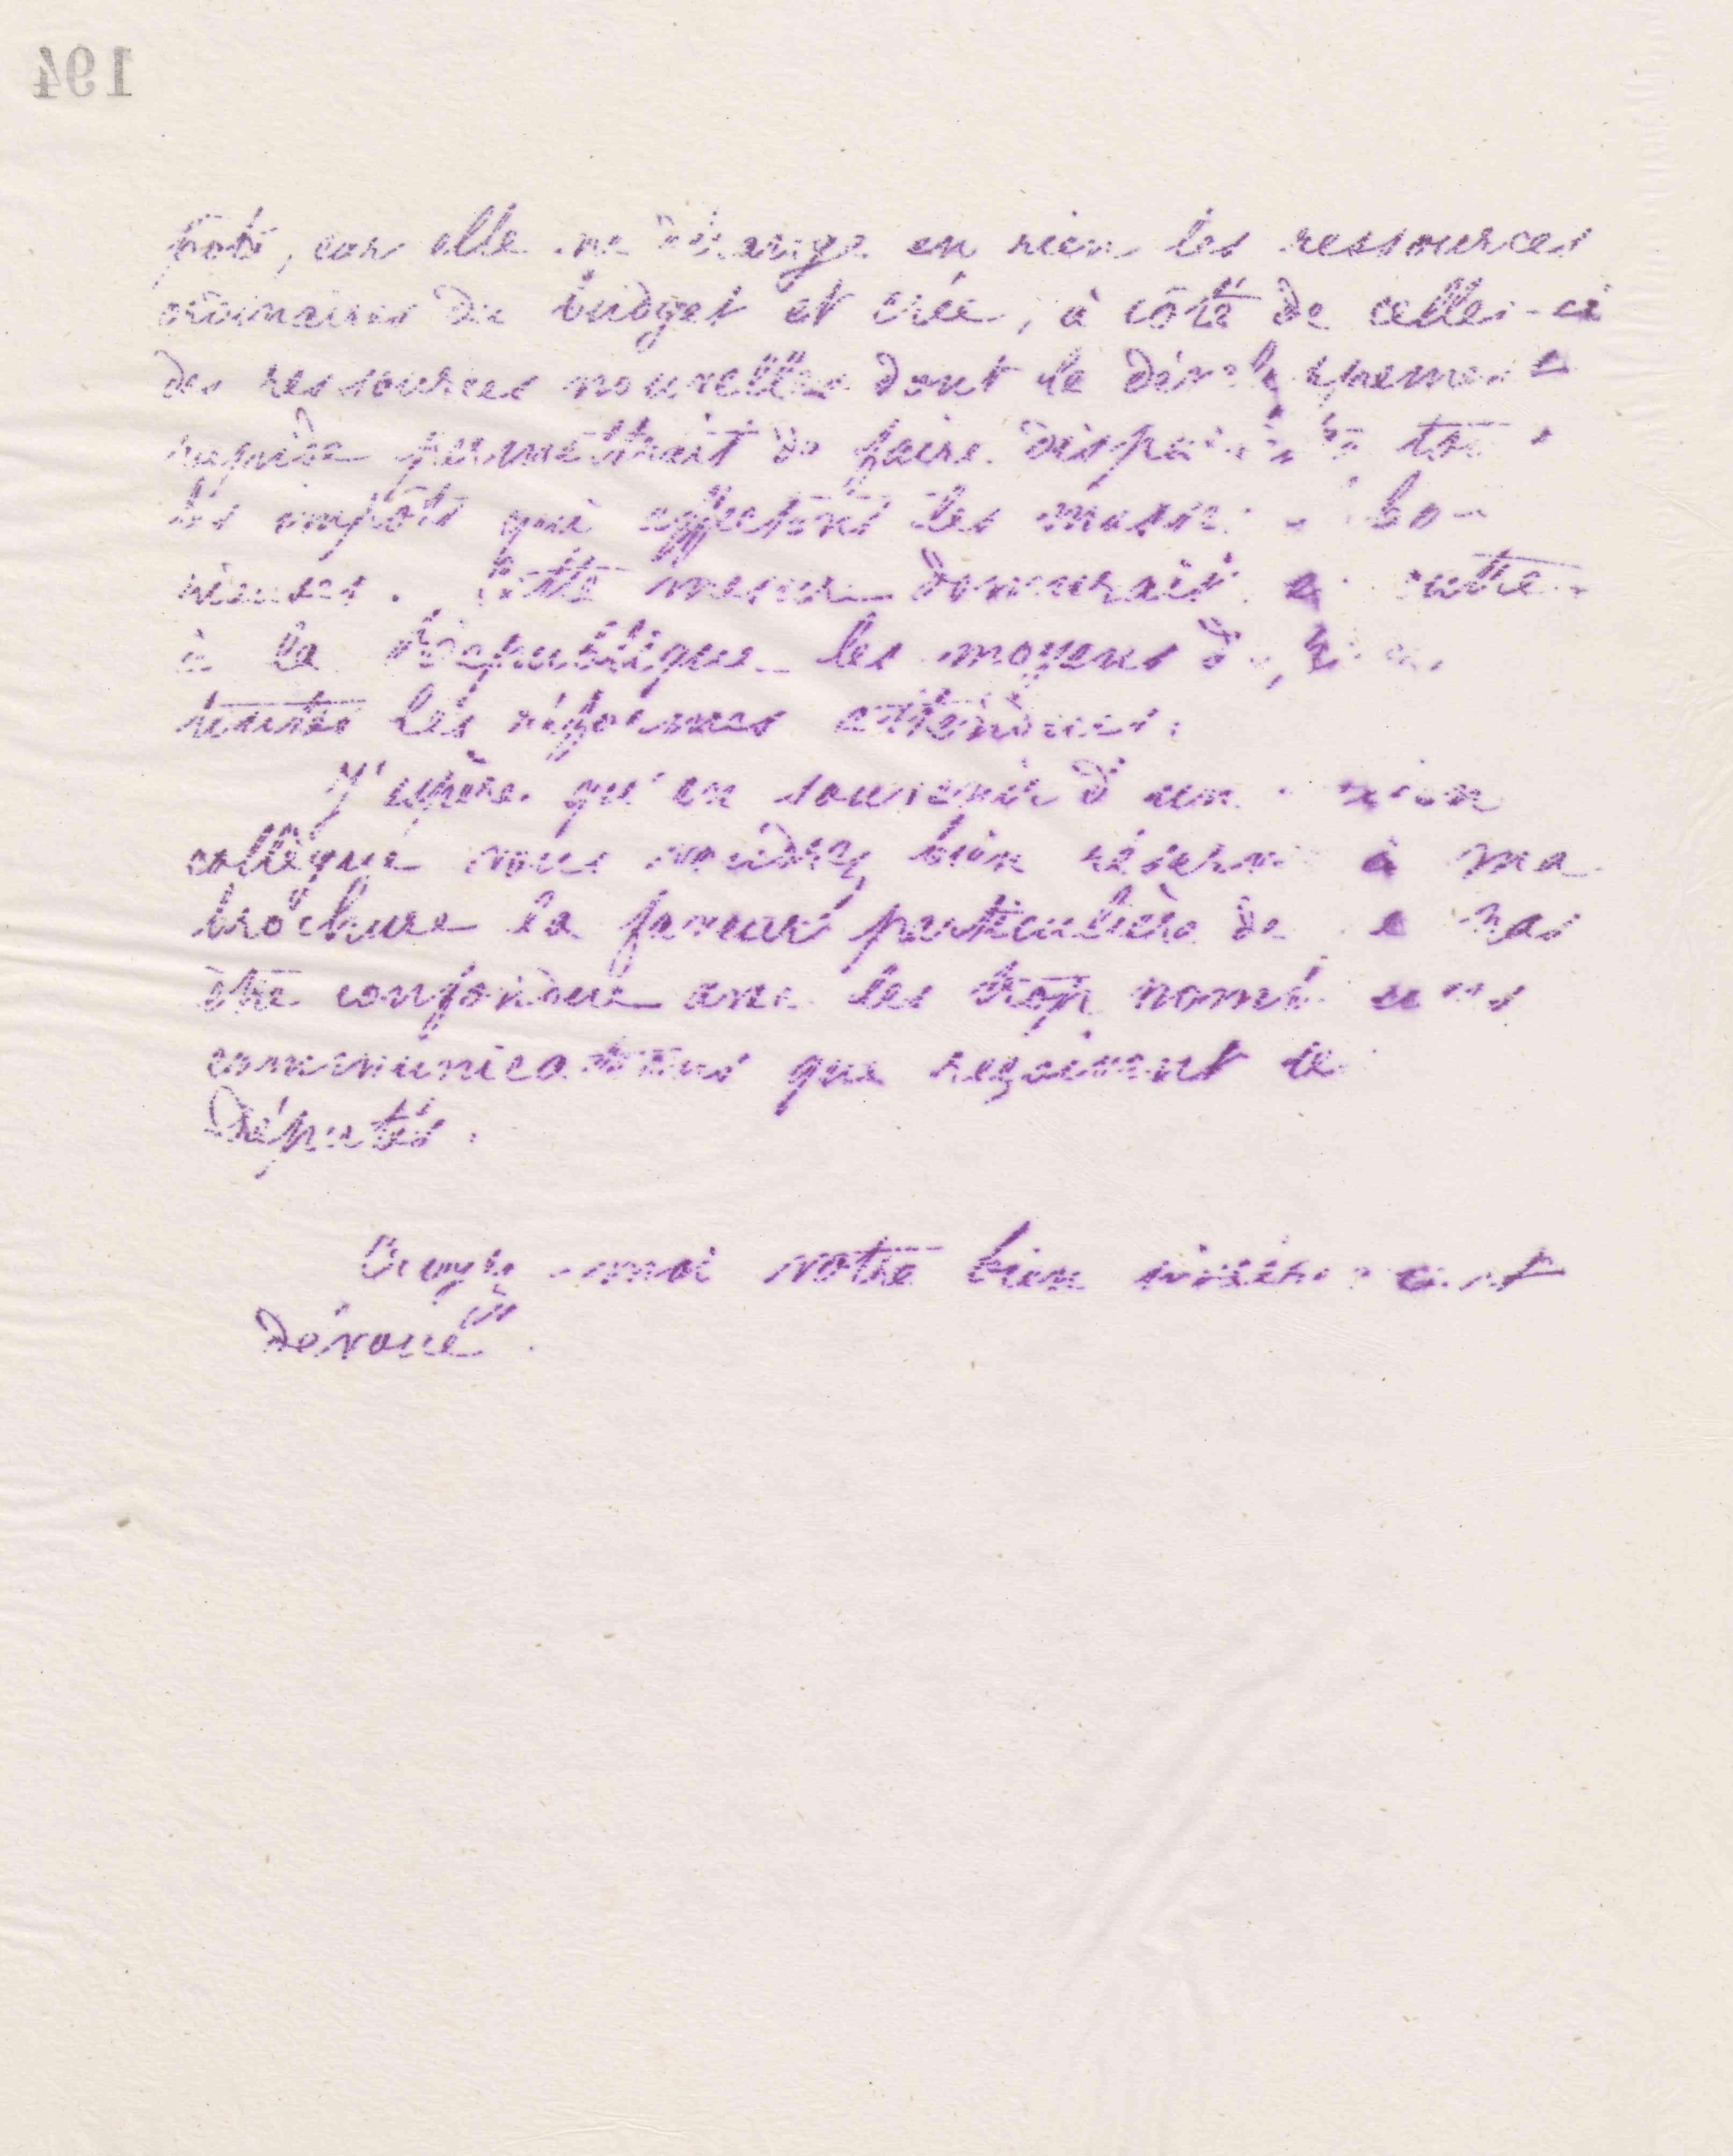 194
pots, car elle ne dérange en rien les ressources
ordinaires du budget et crée, à côté de celles-ci
des ressources nouvelles dont le développement
rapide permettrait de faire disparaître tous
les impôts qui affectent les masses labo-
rieuses. Cette mesure donnerait en outre
à la République les moyens de
toutes les réformes attendues.
J'espère qu'en souvenir d'un ancien
collègue vous voudrez bien réserver à ma
brochure la faveur particulière de ne pas
être confondue avec les trop nombreuses
communications que reçoivent les
Députés.
Croyez-moi votre bien sincèrement
dévoué